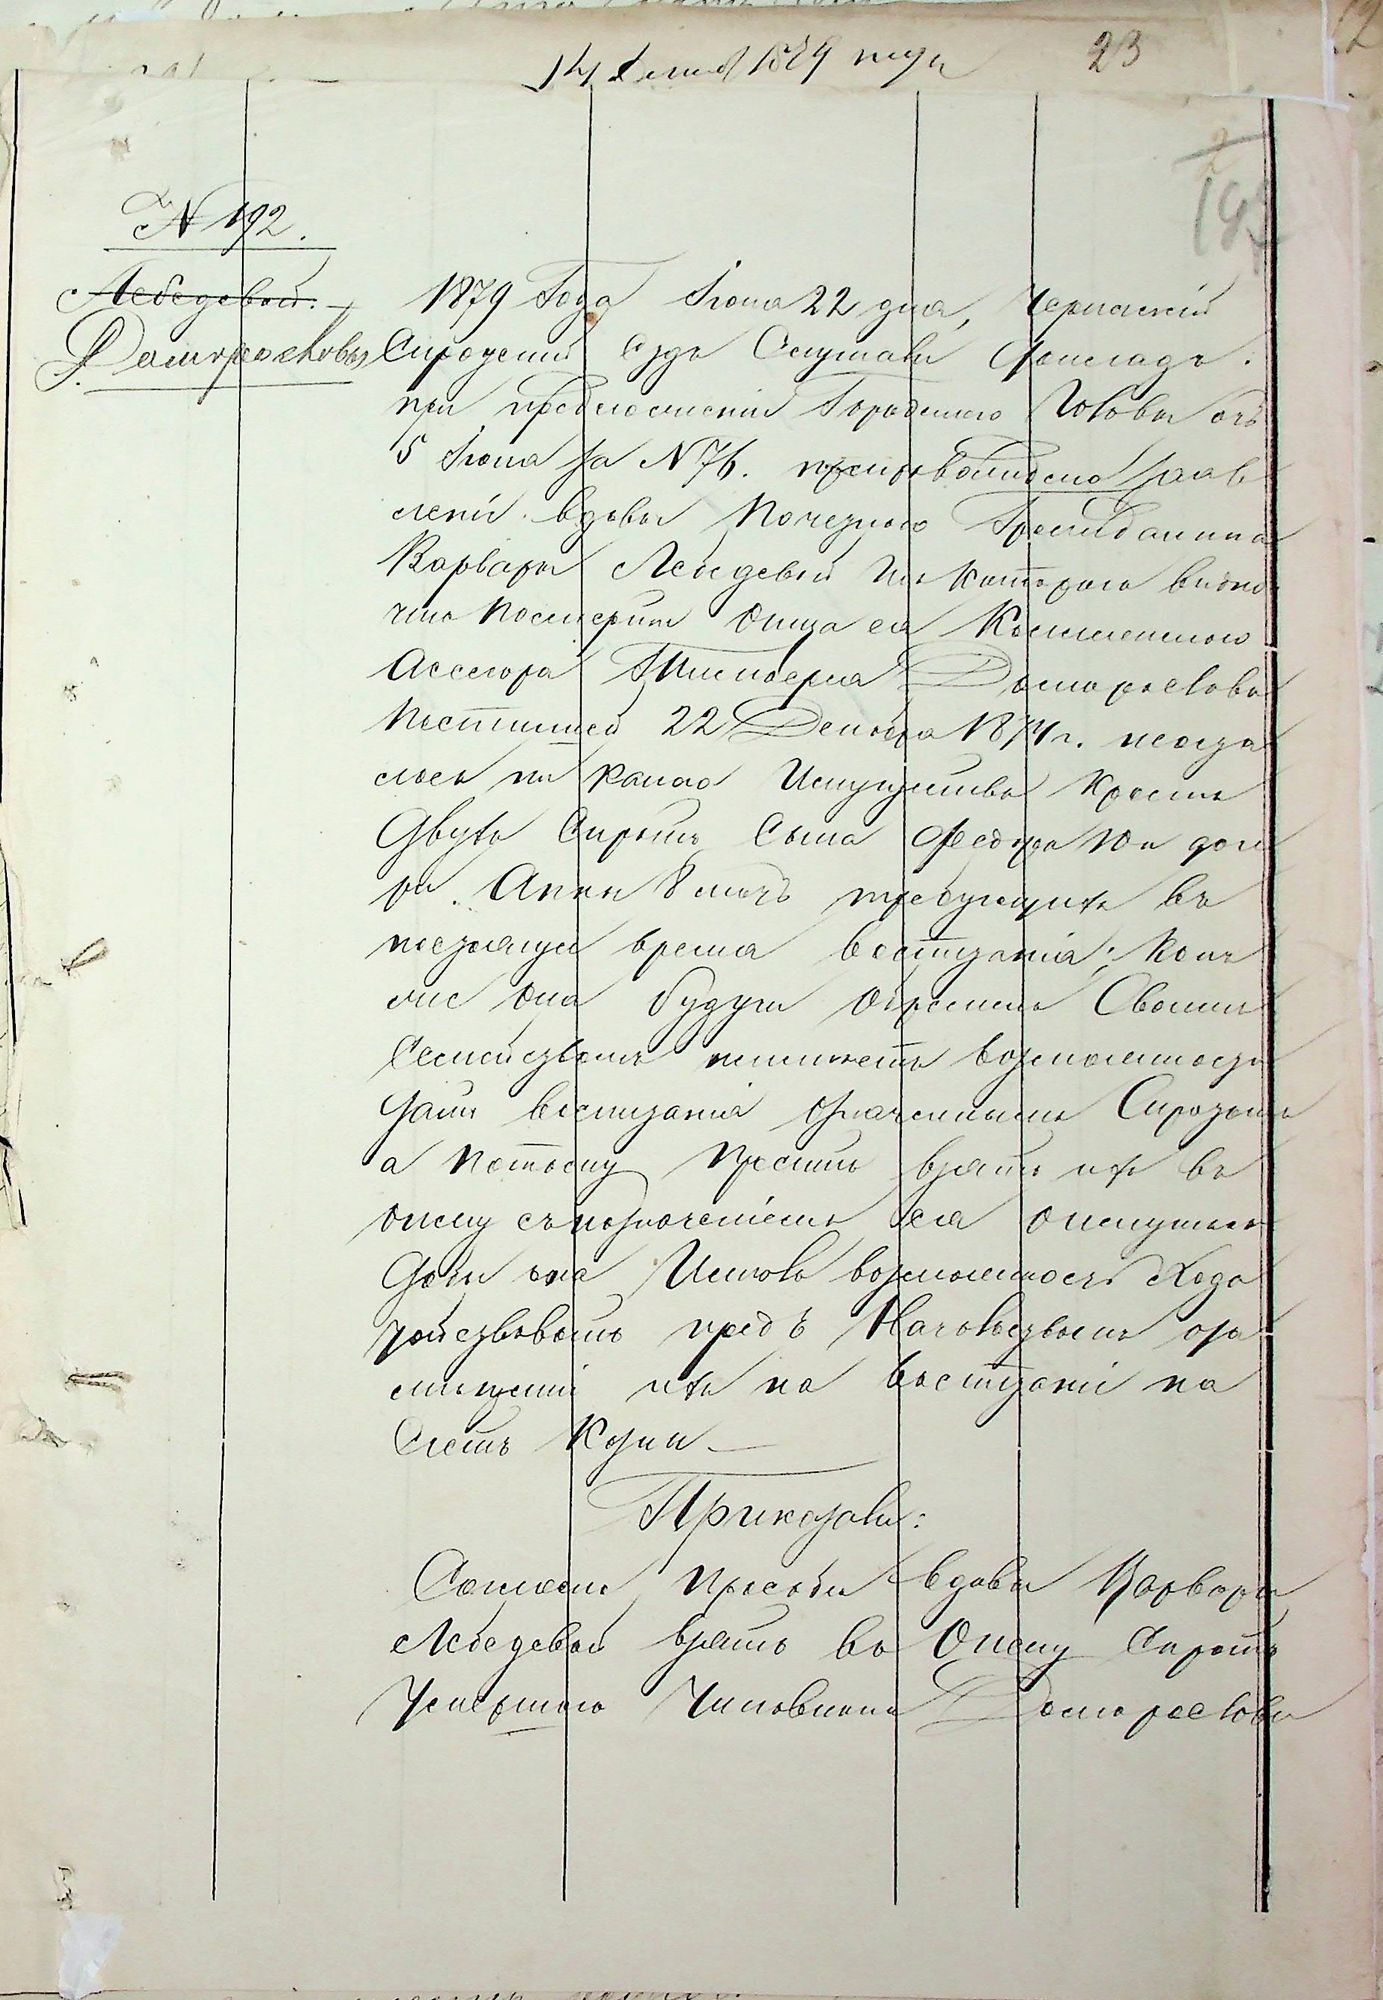 1879 года
23
N 192.
Лебедевой.
Доморослова
1879 Года Іюня 22 дня, Чернскій
Сиротскій Судъ Слушали докладъ:
при предложеніи Городского Головы отъ
5 Іюня за N 76. препровождено заяв
леніе вдовы Почетнаго Гражданина
Варвары Лебедевой Из котораго видно
что после отца ея Коллежскаго
Ассесора Доморослова
22 Декабря 1874 г. оста
лось ни какого Имущества кроме
двухъ Сиротъ Сына Федора 10 и доче
ри Анны 8 летъ требующихъ въ
настоящее время воспитанія;
она будучи обременена Своимъ
Семействомъ неимеетъ возможности
дать воспитанія означеннымъ Сиротамъ
а потому проситъ взять ихъ въ
опеку съ назначеніемъ ея опекуншею
дабы она Имела возможность Хода
тайствовать предъ Начальствомъ о за
мещеніи ихъ на воспитаніе на
Счетъ Казны
Приказали:
Согласно просьбы вдовы Варвары
Лебедевой взять въ Опеку Сиротъ
Умершаго Чиновника Доморослова